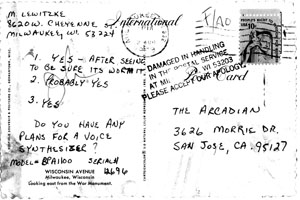 M. LEWITZKE
8620 W. CHEYENNE
MILWAUKEE, WI. 53224
International
1. YES - AFTER SEEING
TO BE SURE ITS WORTH IT
2. PROBABLY YES
3. YES
DO YOU HAVE ANY
PLANS FOR A VOICE
SYNTHESIZER?
MODEL=BPA1100 SERIAL#
12696
WISCONSIN AVENUE
Milwaukee, Wisconsin
Looking east from the War Monument.
DAMAGED IN HANDLING
IN THE POSTAL SERVICE
WI 53203
PLEASE ACCEPT OUR APOLOGY.
Card
THE ARCADIAN
3626 MORRIE DR.
SAN JOSE, CA. 95127